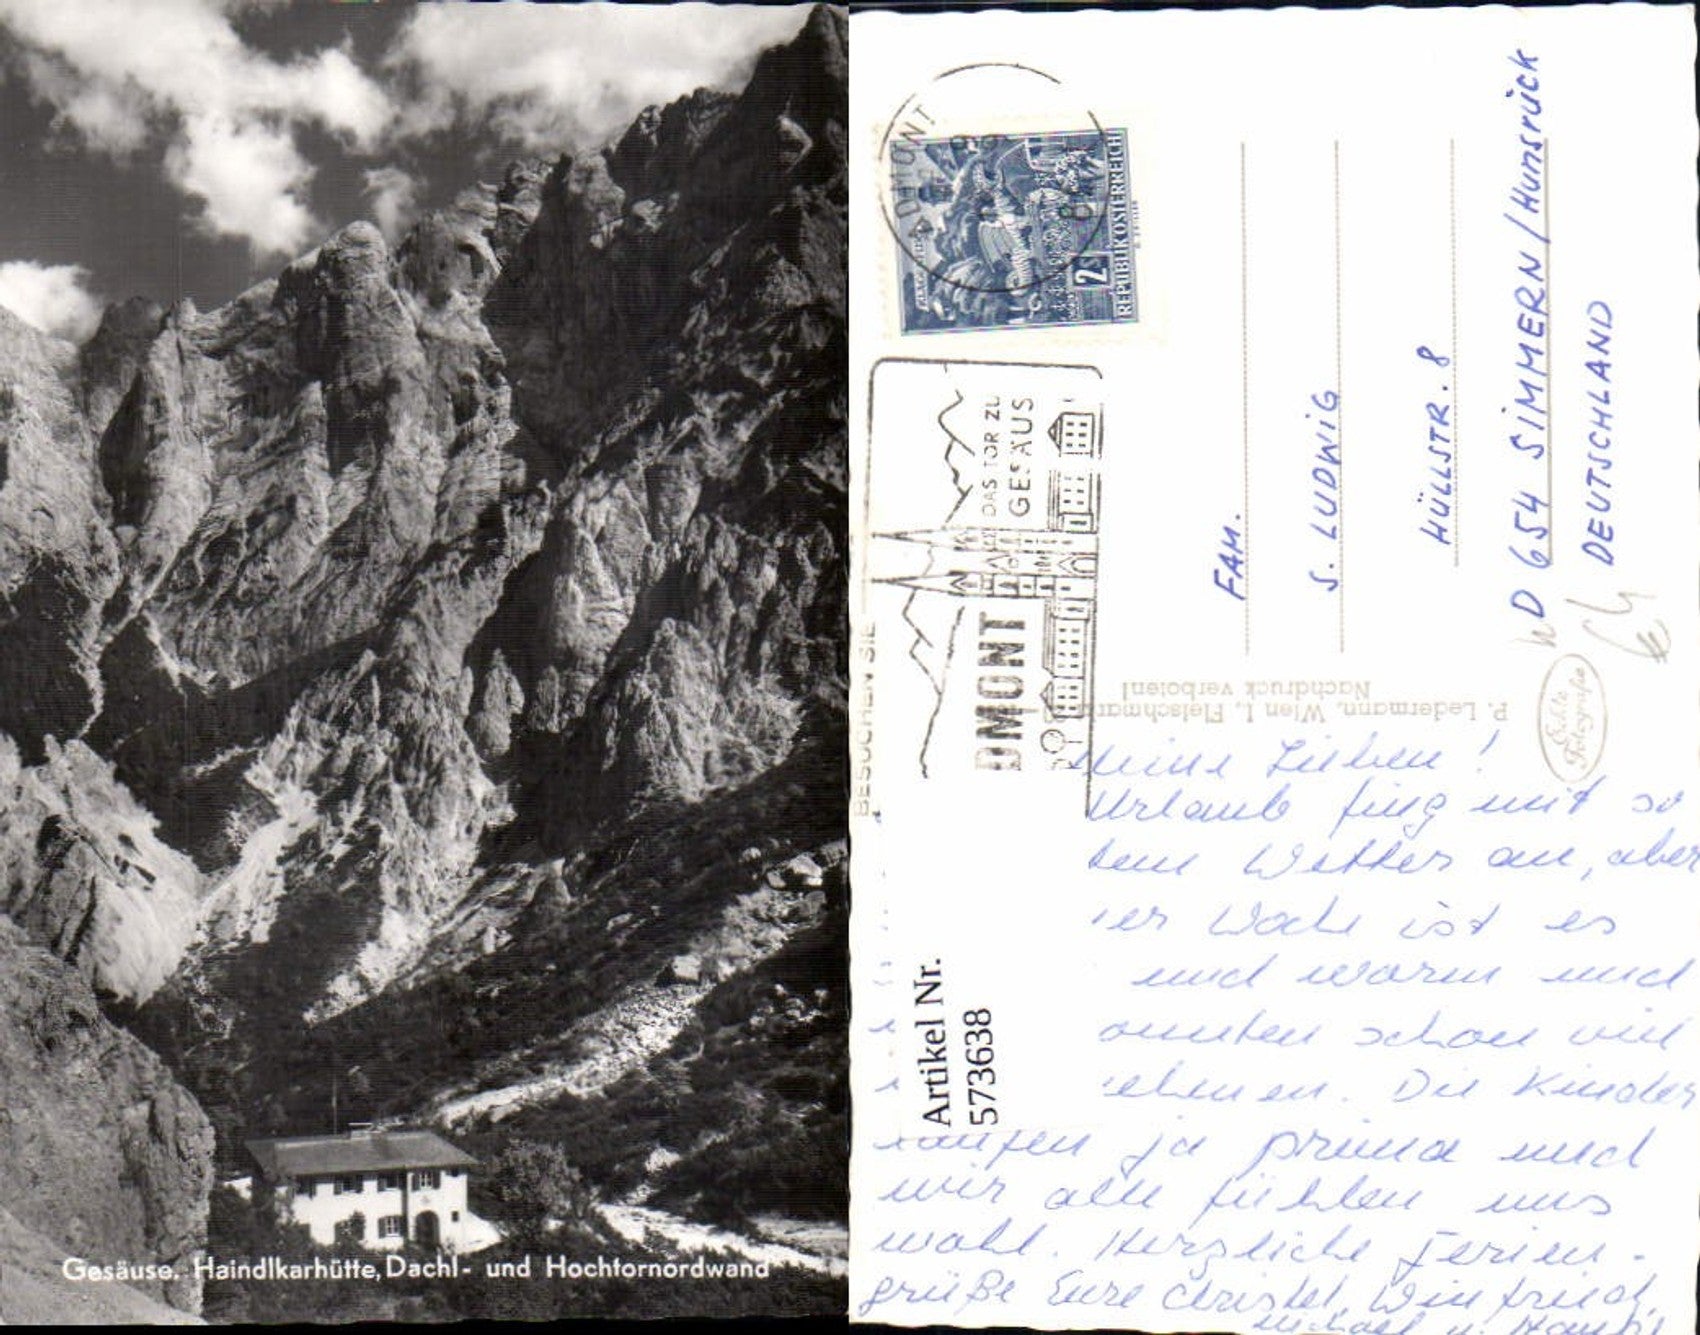 Gesäuse. Haindlkarhütte, Dachl- und Hochtornordwand
ADMONT
2
REPUBLIK ÖSTERREICH
BESUCHEN SIE
DMONT
DAS TOR ZU
GESÄUS
FAM.
S. LUDWIG
HÜLLSTR. 8
D 654 SIMMERN/HUNSRÜCK
DEUTSCHLAND
P. Ledermann, Wien I, Fleischmark
Nachdruck verboten!
Echte
Fotografie
Artikel Nr.
573638
Meine Lieben!
Urlaub fing mit so
tem Wetter an, aber
er Woche ist es
und warm und
onnten schon viel
ehmen. Die Kinder
laufen ja prima und
wir alle fühlen uns
wohl. Herzliche Ferien-
grüße Eure Christel, Winfried,
Michael u.